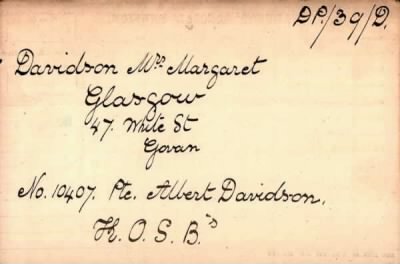 DP./39/D.
Davidson Mrs Margaret
Glasgow
47. White St
Govan
No. 10407. Pte. Albert Davidson,
K. O. S. B.'s